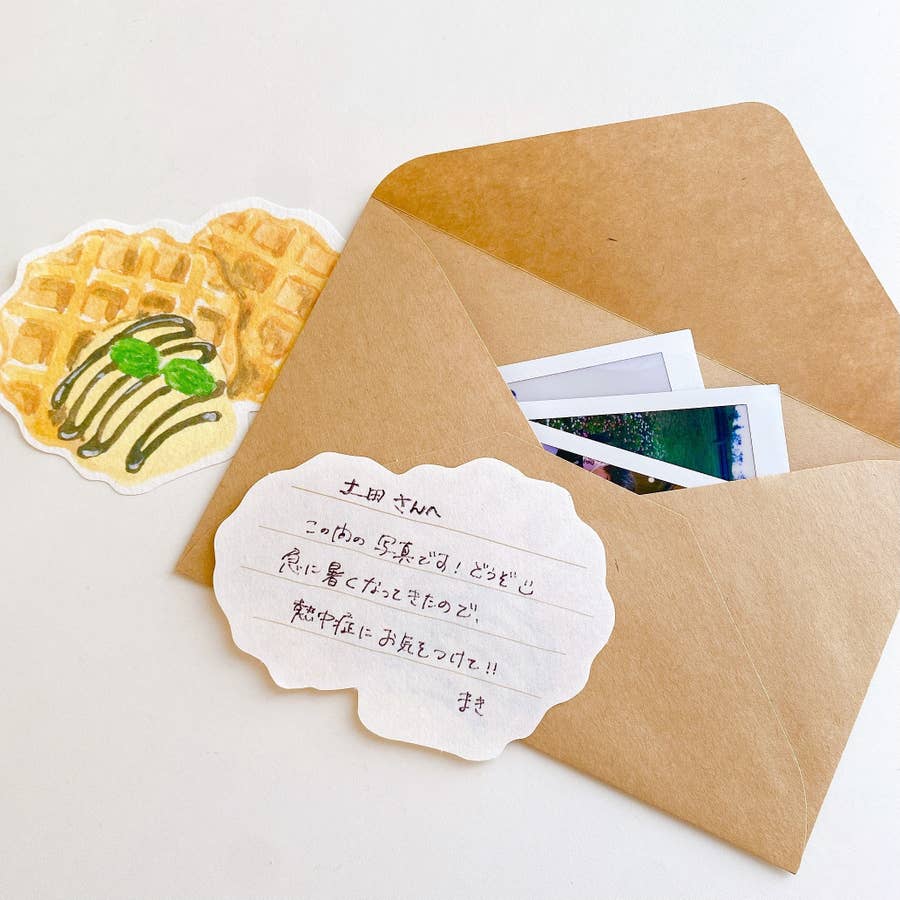 土田さんへ
この間の写真です！どうぞ
急に暑くなってきたので、
熱中症にお気をつけて!!
まき